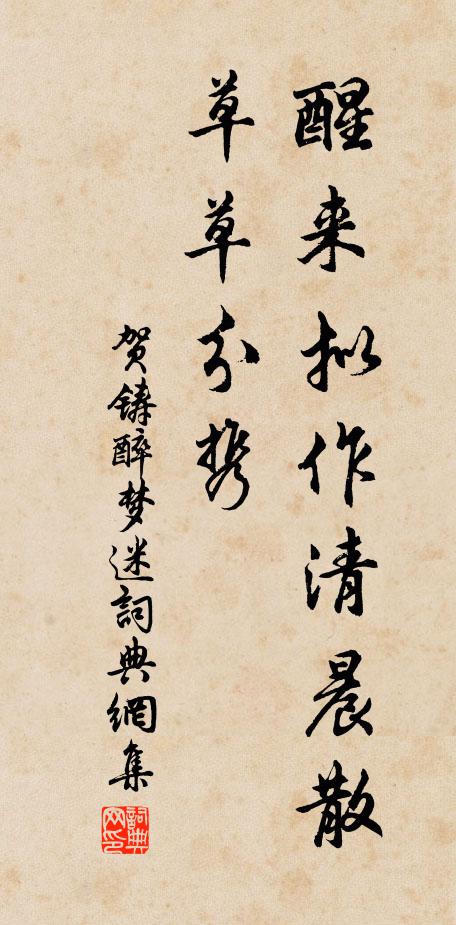 醒来拟作清晨散
草草分携
贺铸醉梦迷词典網集
詞典网印